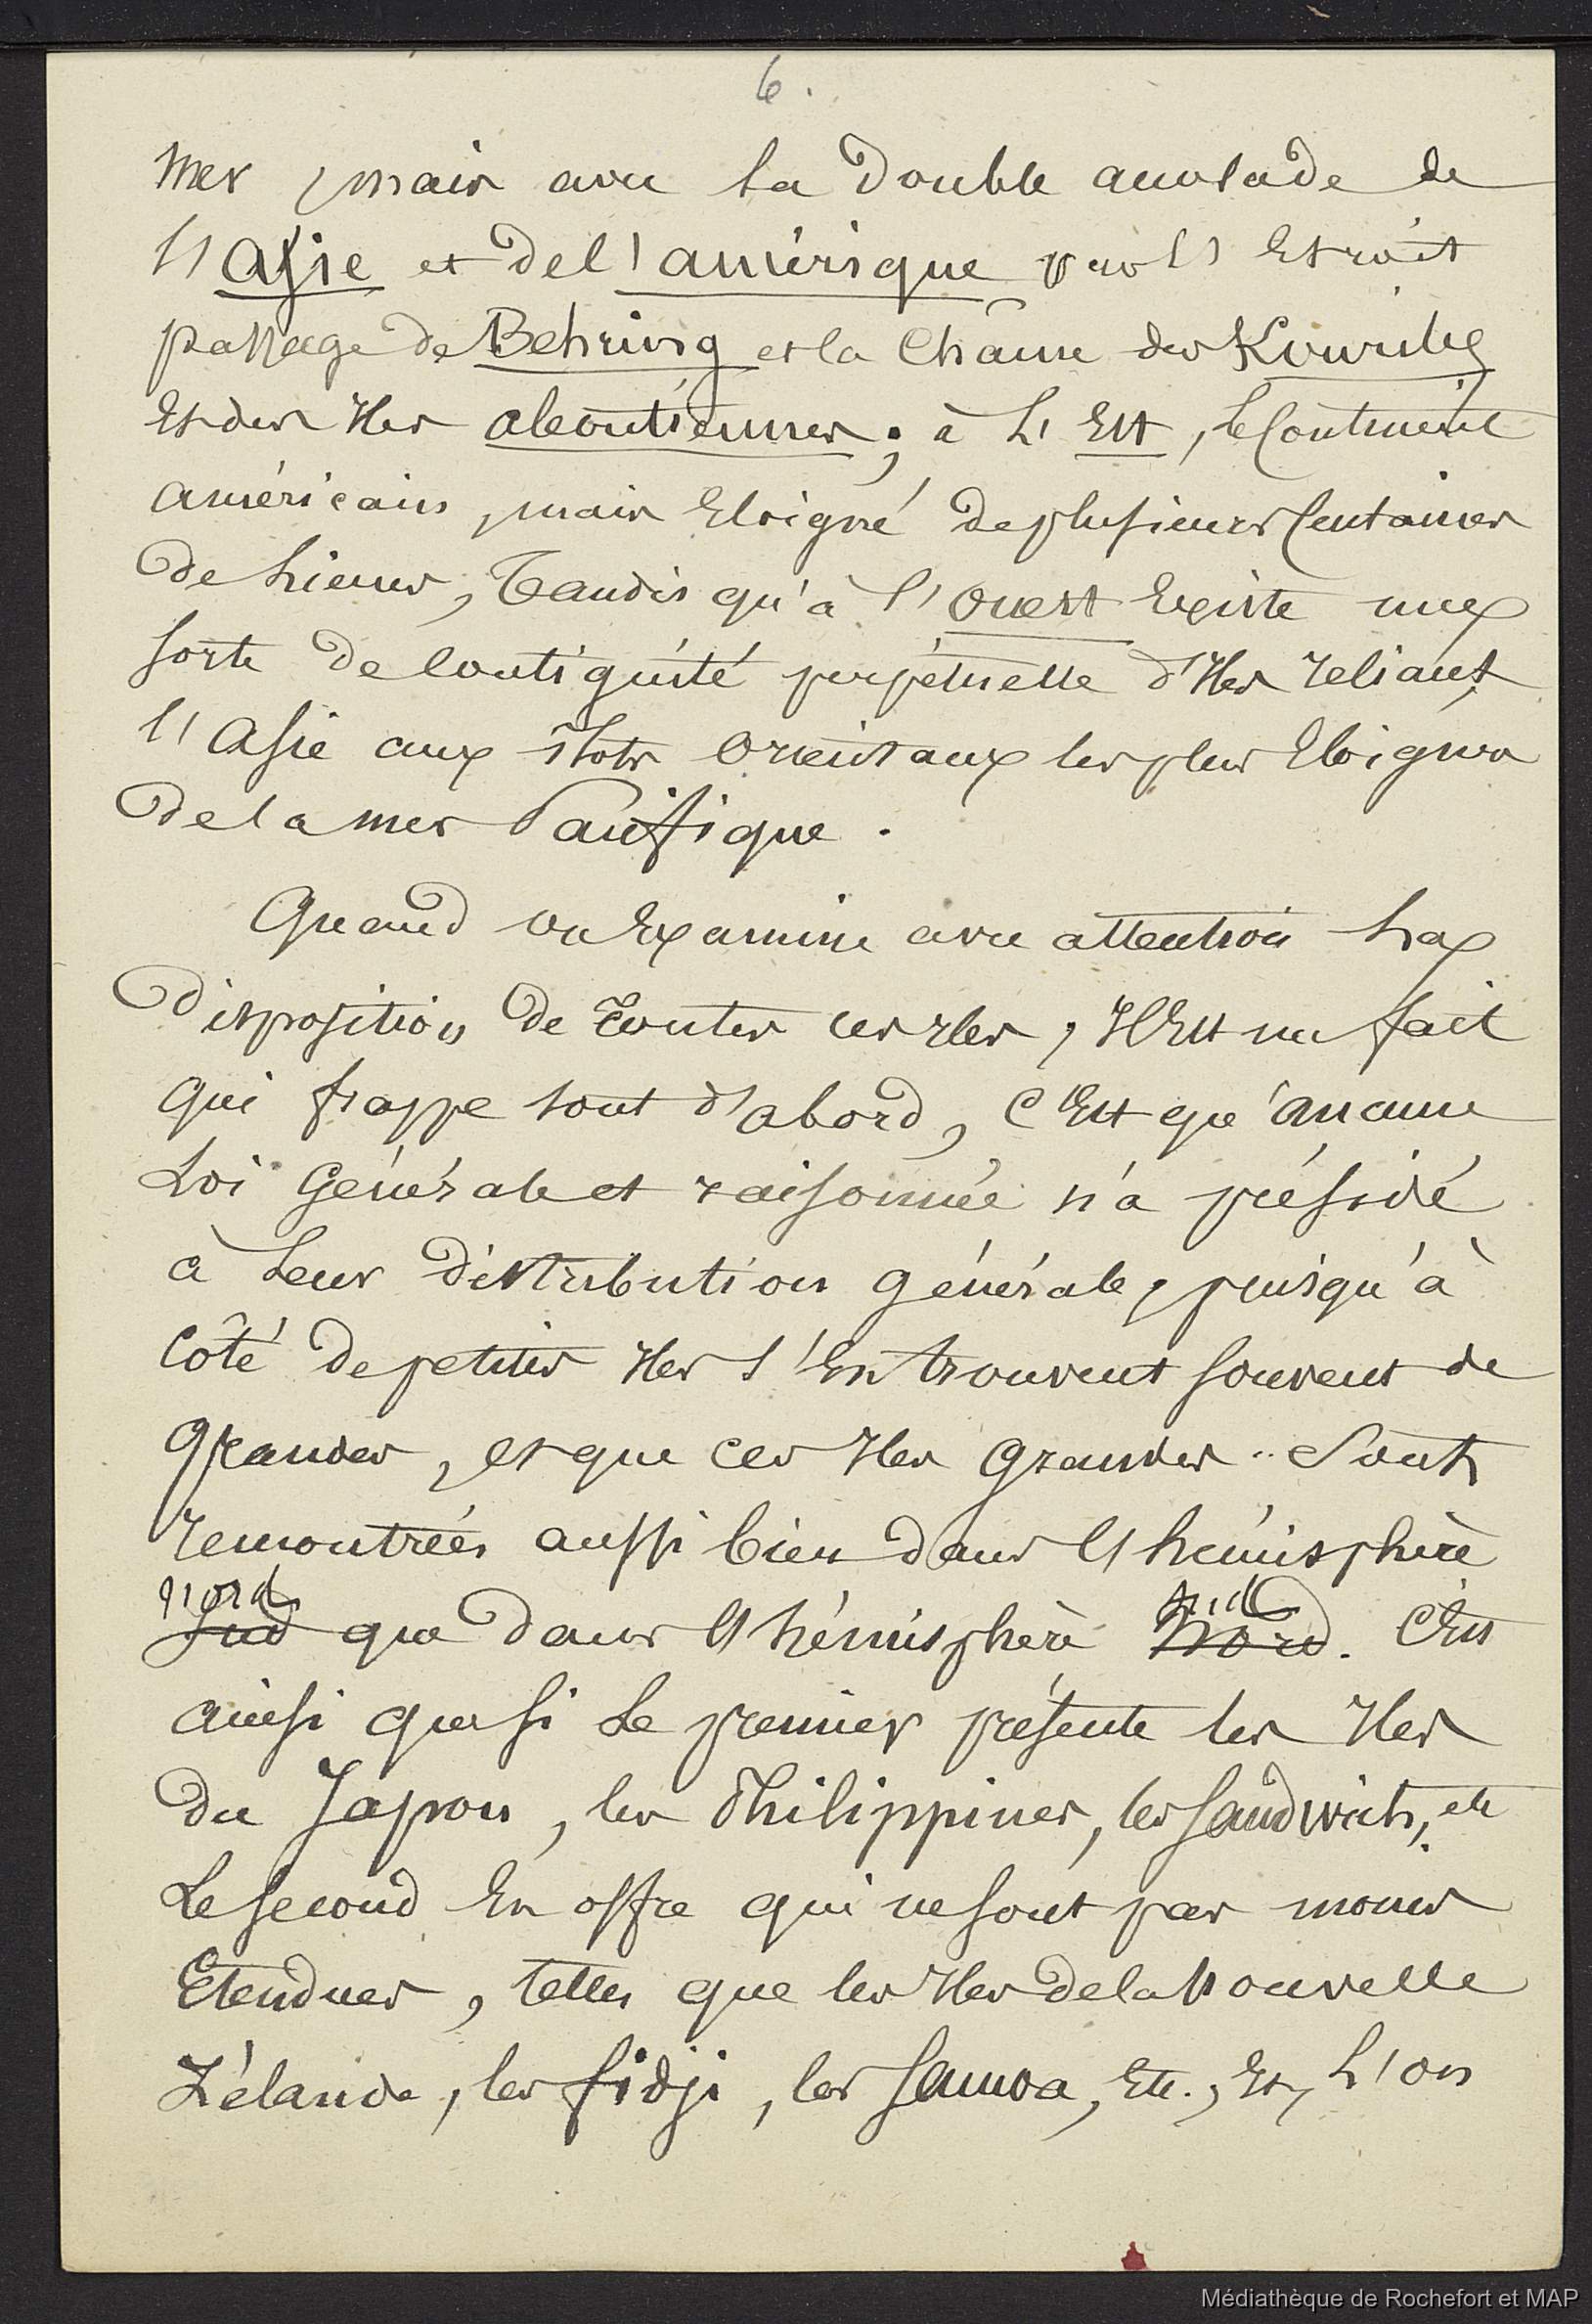 6.
mer, mais avec la double accolade de
l'Asie et de l'amérique par l'Etroit
passage de Behring et la Chaîne des Kouriles
Et des Iles aléoutiennes ; à L'Est, le Continent
américain, mais Eloigné de plusieurs Centaines
de Lieues, Tandis qu'à l'Ouest Existe une
sorte de contiguité perpétuelle d'Iles reliant
l'Asie aux îlots Orientaux les plus Eloignés
de la mer Pacifique.
Quand on Examine avec attention La
disposition de toutes ces Iles, Il Est un fait
qui frappe tout d'abord, C'Est qu'aucune
Loi Générale et raisonnée n'a présidé
à Leur distribution générale, puisqu'à
Côté de petites Iles s'En trouvent souvent de
Grandes, et que ces Iles Grandes sont
rencontrées aussi bien dans l'hémisphère
nord
Sud que dans l'hémisphère Nord. C'Est
sud
ainsi que si Le premier présente les Iles
du Japon, les Philippines, les Sandwich, etc
Le second En offre qui ne sont pas moins
Etendues, telles que les Iles de la Nouvelle
Zélande, les fidji, les Samoa, Etc., Et, L'on
Médiathèque de Rochefort et MAP